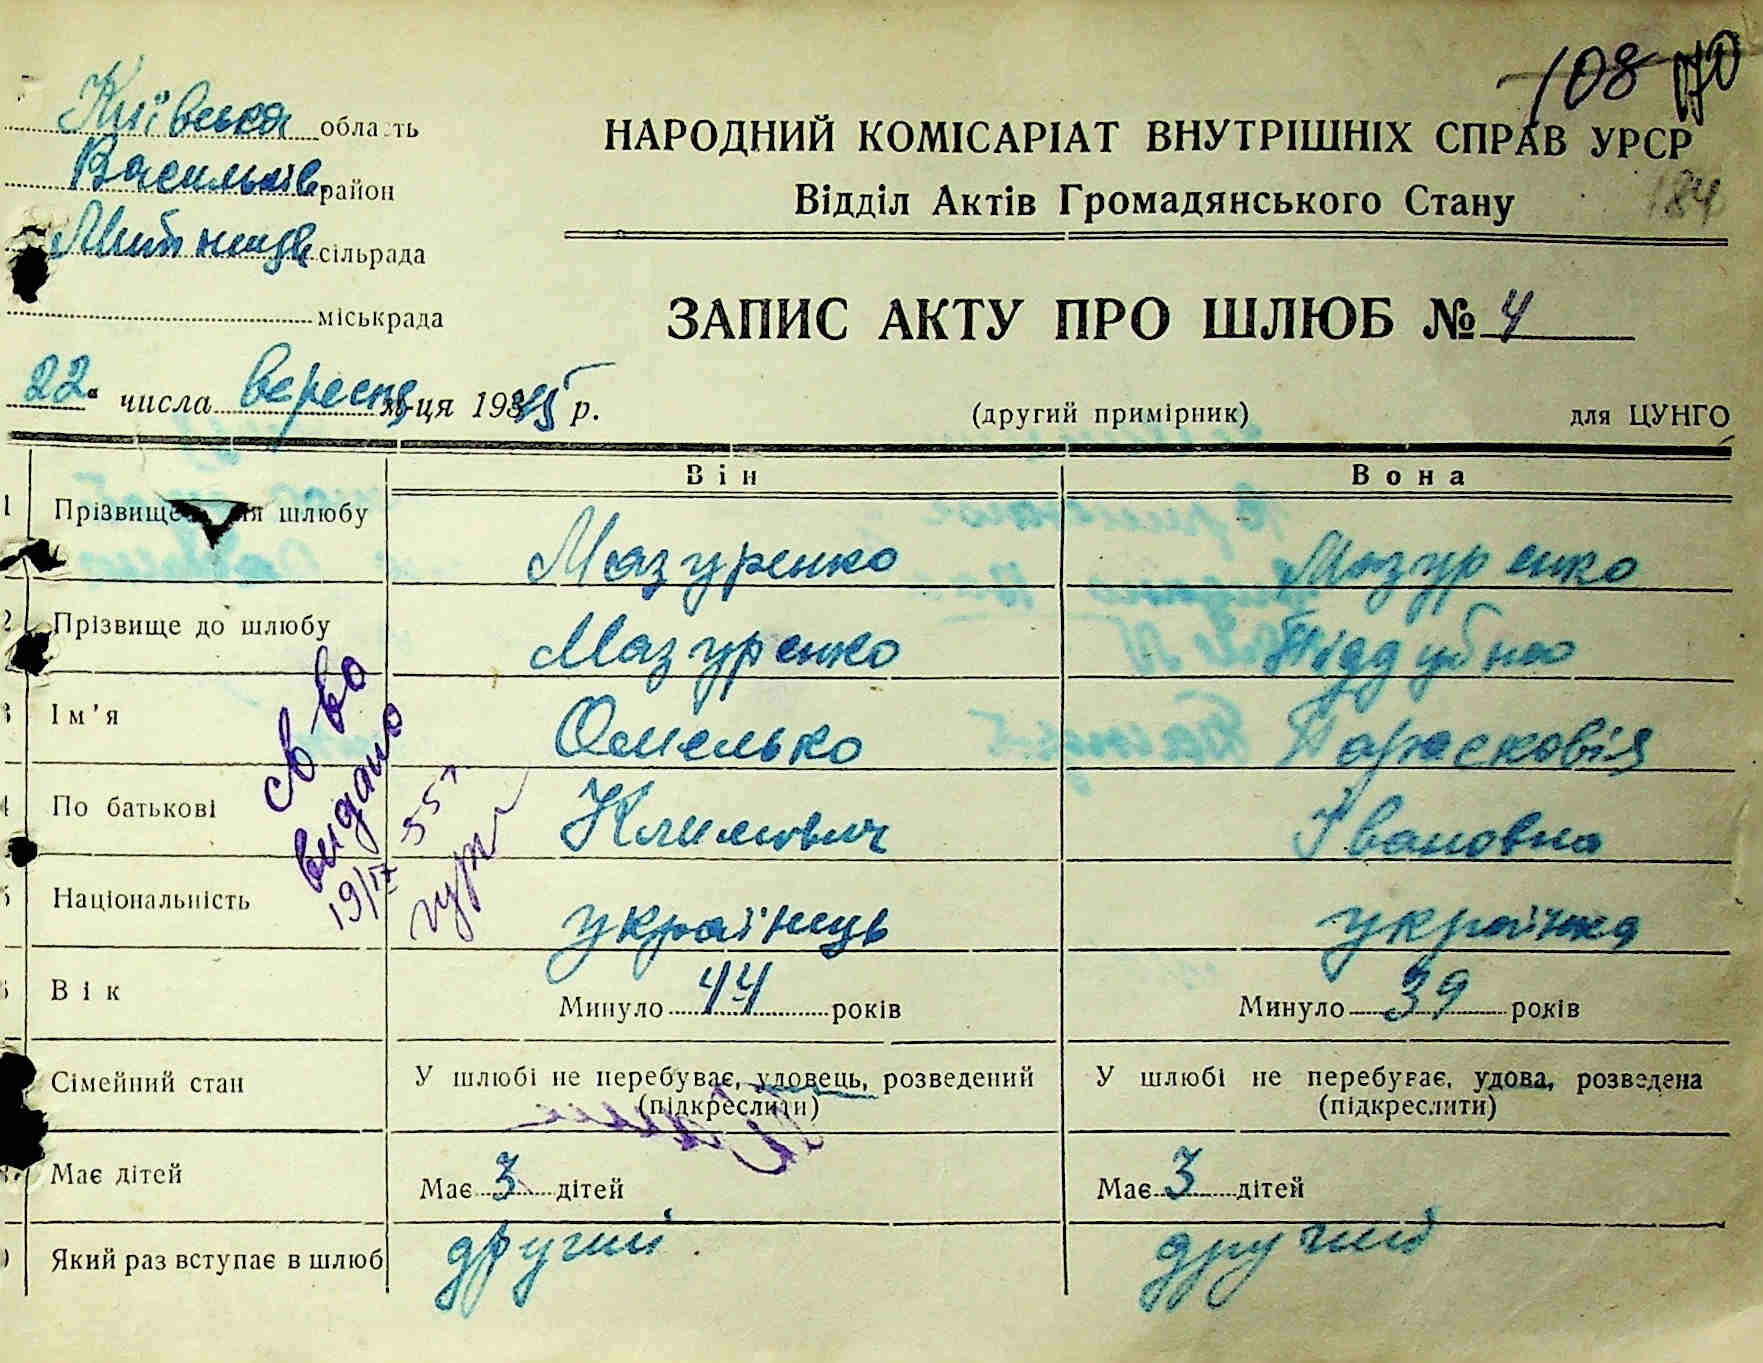 108 170
Київська область
Васильків район
НАРОДНИЙ КОМІСАРІАТ ВНУТРІШНІХ СПРАВ УРСР
Відділ Актів Громадянського Стану
184
Митниця сільрада
міськрада
ЗАПИС АКТУ ПРО ШЛЮБ № 4
22 числа вересня м-ця 1945 р.
(другий примірник) для ЦУНГО
Він Вона
1 Прізвище шлюбу Мазуренко Мазуренко
2 Прізвище до шлюбу Мазуренко Піддубна
3 Ім'я Омелько Парасковія
св во
видано
19/IX 55 г
4 По батькові Климович Івановна
5 Національність українець українка
Вік Минуло 44 років Минуло 39 років
Сімейний стан У шлюбі не перебуває, удовець, розведений У шлюбі не перебуває, удова, розведена
(підкреслити) (підкреслити)
Має дітей Має 3 дітей Має 3 дітей
Який раз вступає в шлюб другий другий